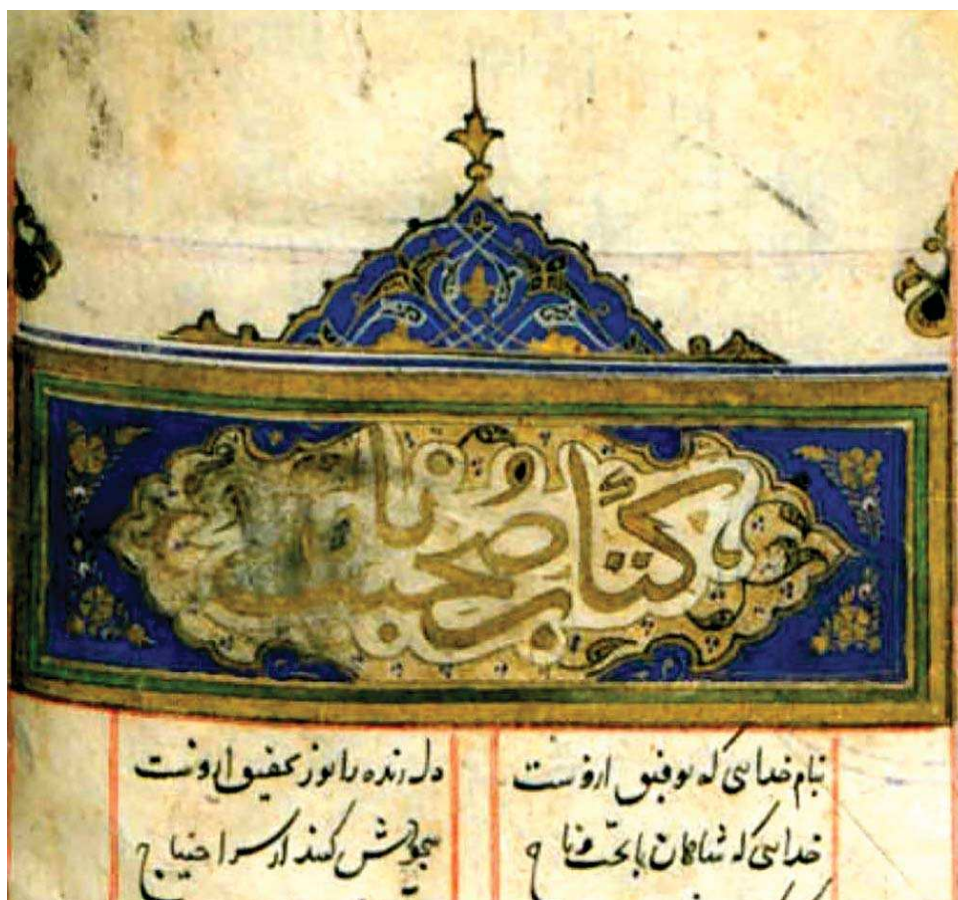 کتاب صحبت نامه
بنام خدایی که توفیق ازوست دل زنده را نور تحقیق ازوست
خدایی که شاهان با تخت و تاج سجودش کنند از سر احتیاج